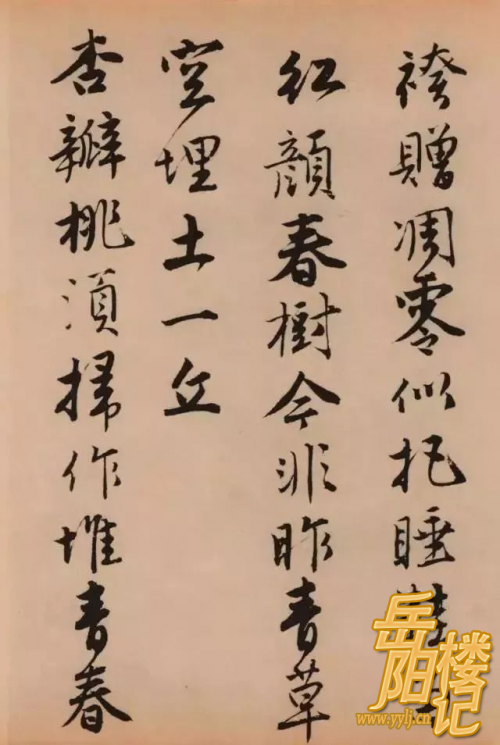 袴贈凋零似把睡
紅顏春樹今非昨青草
空埋土一丘
杏瓣桃須掃作堆青春
岳阳楼记
www.yylj.cn